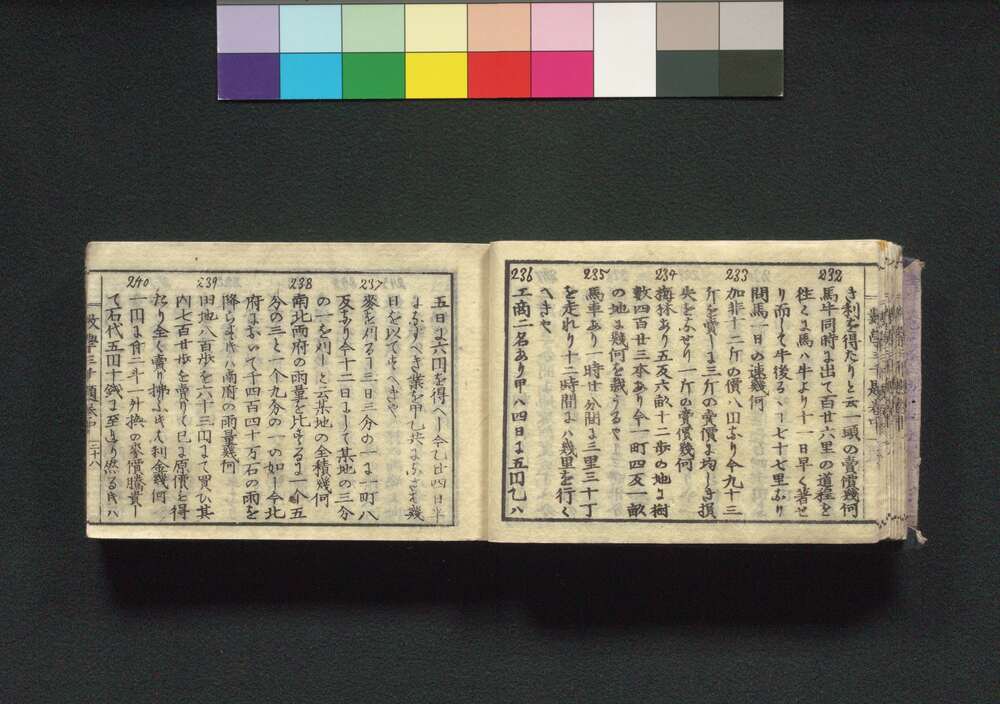 き利を得たりと云一頭の賣價幾何
232
馬牛同時ニ出て百廿六里の道程を
徃くニ馬ハ牛より十一日早く著せ
り而して牛後るヽ七十七里なり
問馬一日の速幾何
233
加非十二斤の價ハ四 なり今九十三
斤を賣しニ三斤の賣價ニ均しき損
失をなせり一斤の賣價幾何
234
梅林あり五反六畝十二歩の地ニ樹
數四百廿三本あり今一町四反一畝
の地ニ幾何を栽うるや
235
馬車あり一時廿分間ニ三里三十丁
を走れり十二時間ニハ幾里を行く
へきや
236
工商二名あり甲ハ四日ニ五円乙ハ
五日ニ六円を得へし今乙廿四日半
になすへき業を甲乙共になさは幾
日を以てすへきや
237
麥を刈るニ三日三分の一ニ一町八
反あり今十二日ニして某地の三分
の一を刈しと云某地の全積幾何
238
南北両府の雨量を比するニ一个五
分の三と一个九分の一の如し今北
府において十四百四十万石の雨を
降らすときハ南府の雨量幾何
239
田地八百歩を六十三円にて買ひ其
内七百廿歩を賣りて已ニ原價を得
たり全く賣り拂ふときハ利金幾何
240
一円ニ付二斗一升換の米價騰貴し
て石代五円十銭ニ至まり然るときハ